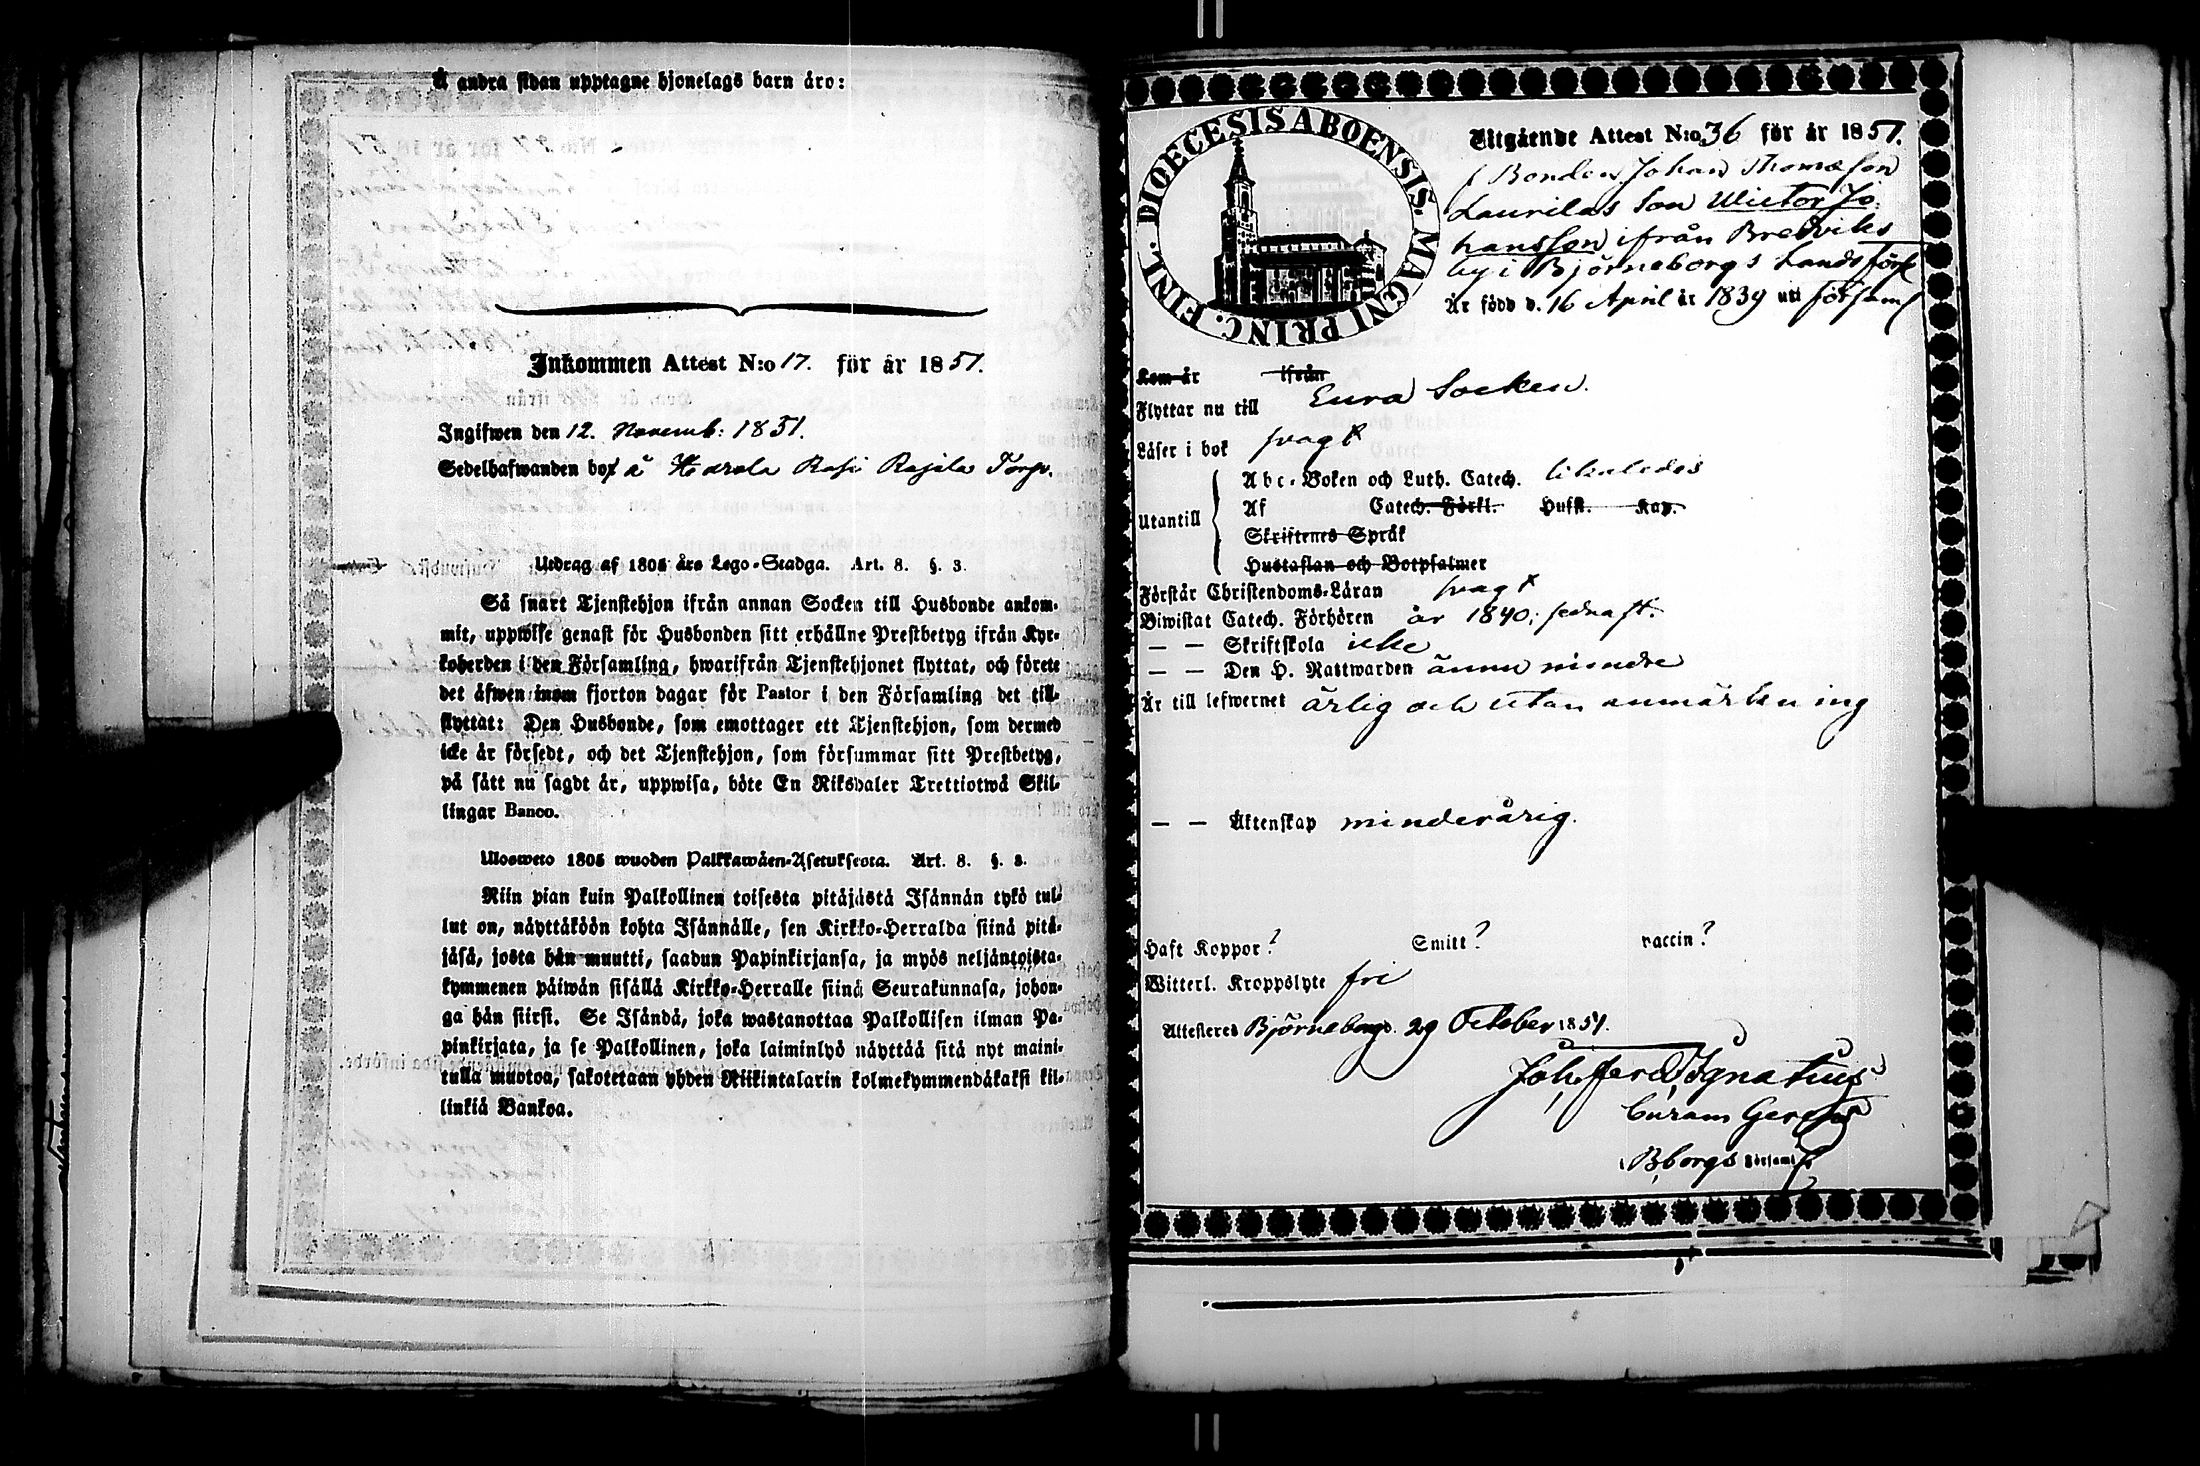 Å andra sidan upptagne hjonelags barn äro:
Inkommen Attest N:o 17. för år 1851.
Ingifwen den 12. Novemb: 1851.
Sedelhafwanden bor å Harola Rasi Rajila Torp.
Utdrag af 1805 års Lego-Stadga. Art. 8. §. 3.
Så snart Tjenstehjon ifrån annan Socken till Husbonde ankom-
mit, uppwise genast för Husbonden sitt erhållne Prestbetyg ifrån Kyr-
koherden i den Församling, hwarifrån Tjenstehjonet flyttat, och förete
det äfwen inom fjorton dagar för Pastor i den Församling det till-
flyttat: Den Husbonde, som emottager ett Tjenstehjon, som dermed
icke är försedt, och det Tjenstehjon, som försummar sitt Prestbetyg,
på sätt nu sagdt är, uppwisa, böte En Riksdaler Trettiotwå Skil-
lingar Banco.
Ulosweto 1805 wuoden Palkkawäen-Asetuksesta. Art. 8. §. 3.
Niin pian kuin Palkollinen toisesta pitäjästä Isännän tykö tul-
lut on, näyttäköön kohta Isännälle, sen Kirkko-Herralda siinä pitä-
jäsä, josta hän muutti, saadun Papinkirjansa, ja myös neljäntoista-
kymmenen päiwän sisällä Kirkko-Herralle siinä Seurakunnasa, johon-
ga hän siirsi. Se Isändä, joka wastanottaa Palkollisen ilman Pa-
pinkirjata, ja se Palkollinen, joka laiminlyö näyttää sitä nyt maini-
tulla muotoa, sakotetaan yhden Riikintalarin kolmekymmendäkaksi kil-
linkiä Bankoa.
DIOECESIS ABOENSIS. MAGNI PRINC. FINL.
Utgående Attest N:o 36 för år 1851.
Bonden Johan Thomæson
Laurilas Son Wictor Jo-
hansson ifrån Bredviks
by i Björneborgs Landsförs
Är född d. 16 April år 1839 uti församl
Kom år ifrån
Flyttar nu till Eura Socken.
Läser i bok svagt
Utantill
Abc-Boken och Luth. Catech. likaledes
Af Catech. Förkl. Husst. Kap.
Skriftenes Språk
Hustaflan och Botpsalmer
Förstår Christendoms-Läran svagt
Biwistat Catech. Förhören år 1840; sednast.
— — Skriftskola icke
— — Den H. Nattwarden ännu mindre
Är till lefwernet ärlig och utan anmärkning
— — Äktenskap minderårig.
Haft Koppor? Smitt? vaccin?
Witterl. Kroppslyte fri
Attesteres Björneborg d. 29 October 1851.
Joh. Ferd. Ignatius
Curam Gerens
i B,borgs Församl